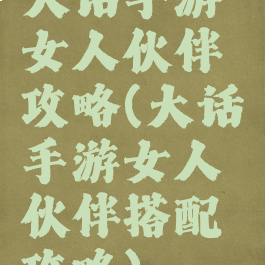 大话手游
女人伙伴
攻略(大话
手游女人
伙伴搭配
攻略)